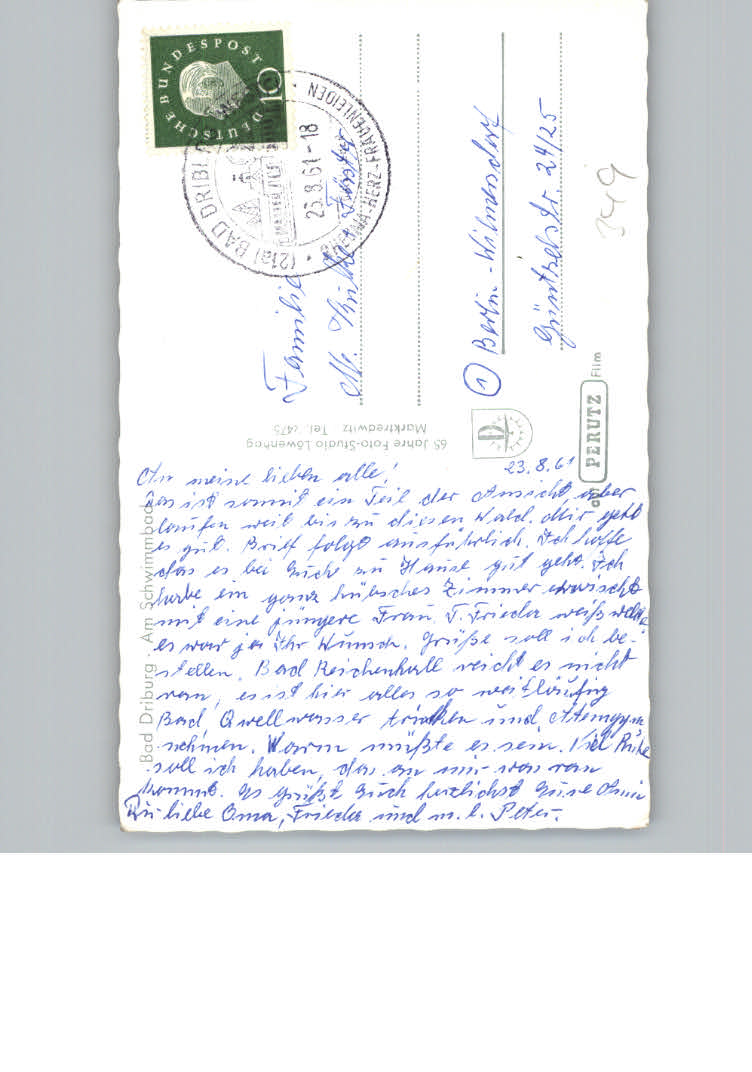 DEUTSCHE BUNDESPOST
10
(21a) BAD DRIBURG
23.8.61-18
RHEUMA-HERZ-FRAUENLEIDEN
Familie
M.
Förster
① Berlin-Wilmersdorf
Güntzelstr. 24/25
349
65 Jahre Foto-Studio Löwenhag
Marktredwitz Tel. 2475
auf PERUTZ Film
Bad Driburg · Am Schwimmbad
23.8.61
An meine lieben alle!
Das ist somit ein Teil der Ansicht, aber
laufen weit bis zu diesen Wald. Mir geht
es gut. Brief folgt ausführlich. Ich hoffe
das es bei Euch zu Hause gut geht. Ich
habe ein ganz hübsches Zimmer erwischt
mit eine jüngere Frau. T. Frieda weiß
es war ja Ihr Wunsch. Grüße soll ich be-
stellen. Bad Reichenhall reicht es nicht
ran, es ist hier alles so weitläufig
Bad Quellwasser trinken und Atemgym.
nehmen. Warm müßte es sein. Viel Ruhe
soll ich haben, das an mir was ran
kommt. Es grüßt Euch herzlichst Eure
Du liebe Oma, Frieda und m. l. Peter.